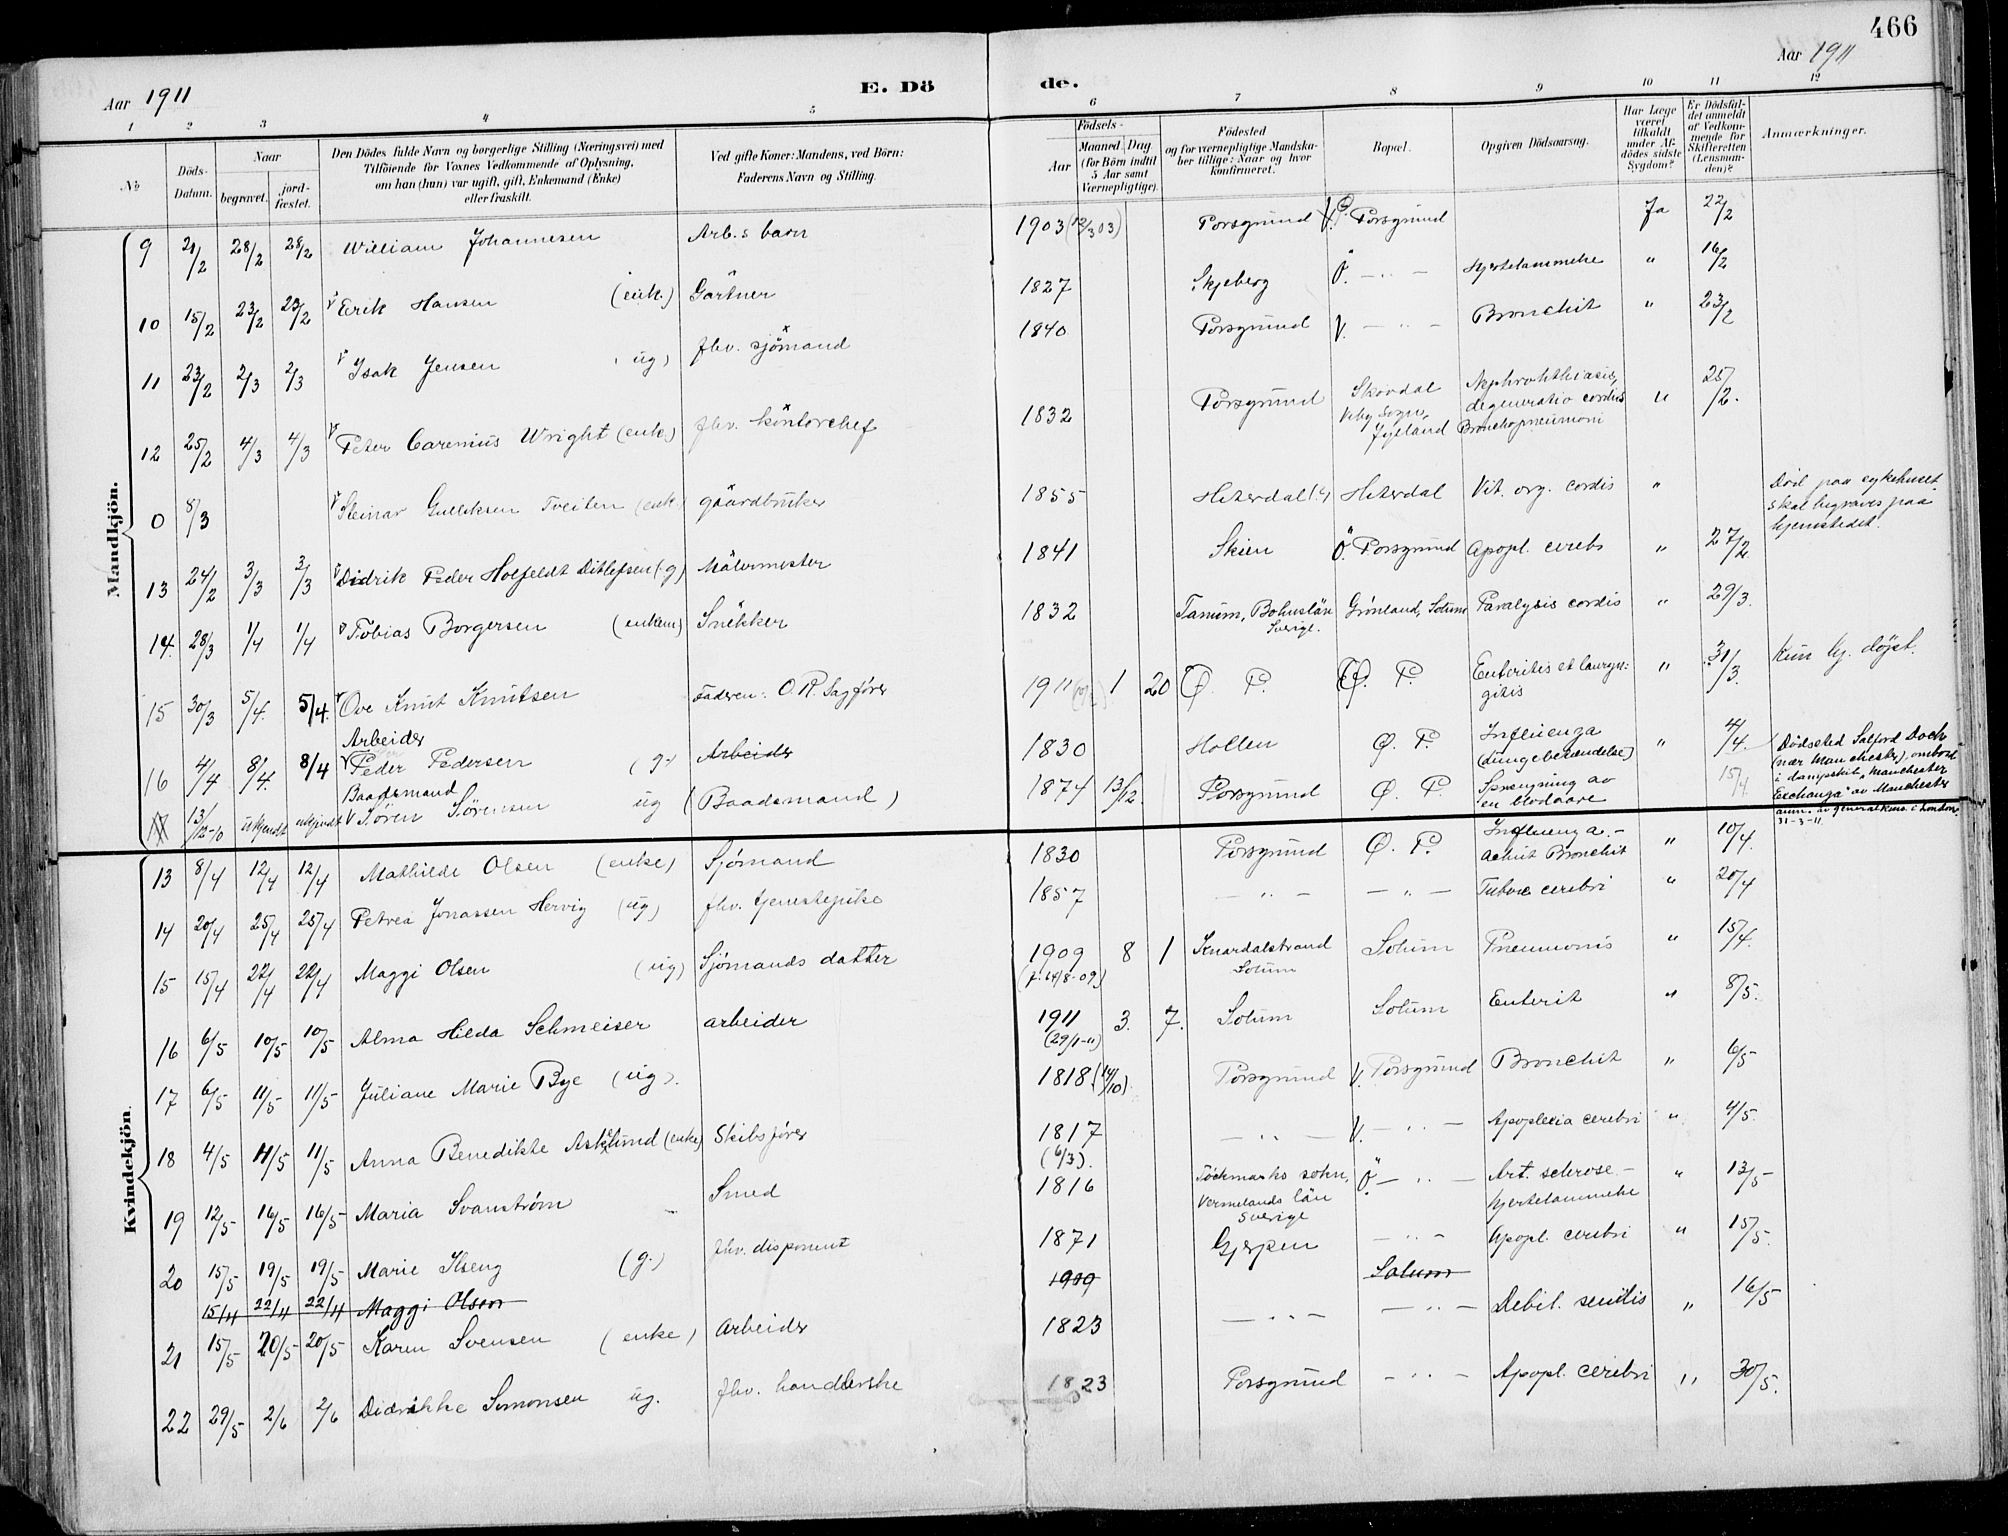 466
Aar 1911
E. Dö
de.
Aar 1911
1 2 3 4 5 6 7 8 9 10 11 12
№
Döds-Datum.
Naar
begravet.
jord-fæstet.
Den Dödes fulde Navn og borgerlige Stilling (Næringsvei) med
Tilföiende for Voxnes Vedkommende af Oplysning,
om han (hun) var ugift, gift, Enkemand (Enke)
eller fraskilt.
Ved gifte Koner: Mandens, ved Börn:
Faderens Navn og Stilling.
Födsels-
Aar
Maaned. Dag
(for Börn indtil
5 Aar samt
Værnepligtige).
Födested
og for værnepligtige Mandska-
ber tillige: Naar og hvor
konfirmeret.
Bopæl.
Opgiven Dödsaarsag.
Har Læge
været
tilkaldt
under Af-
dödes sidste
Sygdom?
Er Dödsfal-
det anmeldt
af Vedkom-
mende for
Skifteretten
(Lensman-
den)?
Anmærkninger.
Mandkjön.
9 21/2 28/2 28/2 William Johannesen Arb.s barn 1903 (12/3 03) Porsgrund V. Porsgrund Ja 22/2
10 15/2 23/2 23/2 Erik Hansen (enk.) Gartner 1827 Skjeberg Ö. — " — Hjertelammelse " 16/2
11 23/2 2/3 2/3 Isak Jensen ug) fhv. sjömand 1840 Porsgrund V. — " — Bronchit " 23/2
12 25/2 4/3 4/3 Peter Carenius Wright (enk.) fhv. kontorchef 1832 Porsgrund Skovdal
Viby Sogn,
Jylland Nephrohthiasis,
degeneratio cordis
Bronchopneumoni " 25/2.
0 8/3 Steinar Gulliksen Tveiten (enk. gaardbruker 1855 Hiterdal Hiterdal Vit. org. cordis " Död paa sykehuset
skal begraves paa
hjemstedet.
13 24/2 3/3 3/3 Didrik Peder Holfeldt Ditlefsen (g) Malermester 1841 Skien Ö. Porsgrund Apopl. cerebr " 27/2
14. 28/3 1/4 1/4 Tobias Borgersen (enkem) Snekker 1832 Tanum, Bohuslän
Sverige. Grønland, Solum Paralysis cordis " 29/3.
15 30/3 5/4. 5/4. Ove Knut Knutsen Faderen: O.R. Sagfører 1911 1 20 Ø. P. Ø. P. Enteritis et laryn:
gitis " 31/3. Kun hj. døpt.
16 4/4 8/4. 8/4 Arbeider
Peder Pedersen (g.) Arbeider 1830 Hollen Ø. P. Influenza
(lungebetændelse) " 4/4.
13/12-10 ukjendt ukjendt Baadsmand
Søren Sørensen ug (Baadsmand) 1874 13/12. Porsgrund Ø. P. Sprengning av
en blodaare 15/4 Dödssted Salford Dock
(nær Manchester), ombord
i dampskib „Manchester
Exchange" av Manchester
anm. av generalkons. i London
31-3-11.
Kvindekjön.
13 8/4 12/4 12/4 Mathilde Olsen (enke) Sjømand 1830 Porsgrund Ø. P. Influenza.-
Achut Bronchit " 10/4.
14 20/4 25/4 25/4 Petrea Jonassen Hervig (ug) fhv. tjenestepike 1857 — " — — " — Tubuc cerebri " 20/4
15 15/4 22/4 22/4 Maggi Olsen (ug) Sjømands datter 1909
(f. 14/8-09) 8 1 Knardalstrand
Solum Solum Pneumonis " 15/4.
16 6/5 10/5 10/5 Alma Hilda Schmeiser arbeider 1911
(29/1-11) 3. 7. Solum Solum Enterit " 8/5.
17 6/5 11/5 11/5 Juliane Marie Bye (ug). 1818 (14/10). Porsgrund V. Porsgrund Bronchit " 6/5
18 4/5 11/5 11/5 Anna Benedikte Asklund (enke) Skibsfører 1817
(6/3). — " — V. — " — Apoplexia cerebri " 4/5.
19 12/5- 16/5 16/5- Maria Svanstrøm Smed 1816 Töckmarks sokn,
Vermelands län
Sverige Ö. — " — Art. sclerose-
hjertelammelse " 13/5-
20 15/5 19/5 19/5 Marie Ilseng (g.) fhv. disponent 1871 Gjerpen — " — Apopl. cerebri " 15/5.
15/4 22/4 22/4 Maggi Olsen 1909 Solum
21 15/5 20/5 20/5 Karen Svensen (enke) Arbeider 1823 — " — — " — Debil. senilis " 16/5
22 29/5 2/6 2/6 Didrikke Simonsen ug. fhv. handlerske 1823 Porsgrund — " — Apopl. cerebri " 30/5.